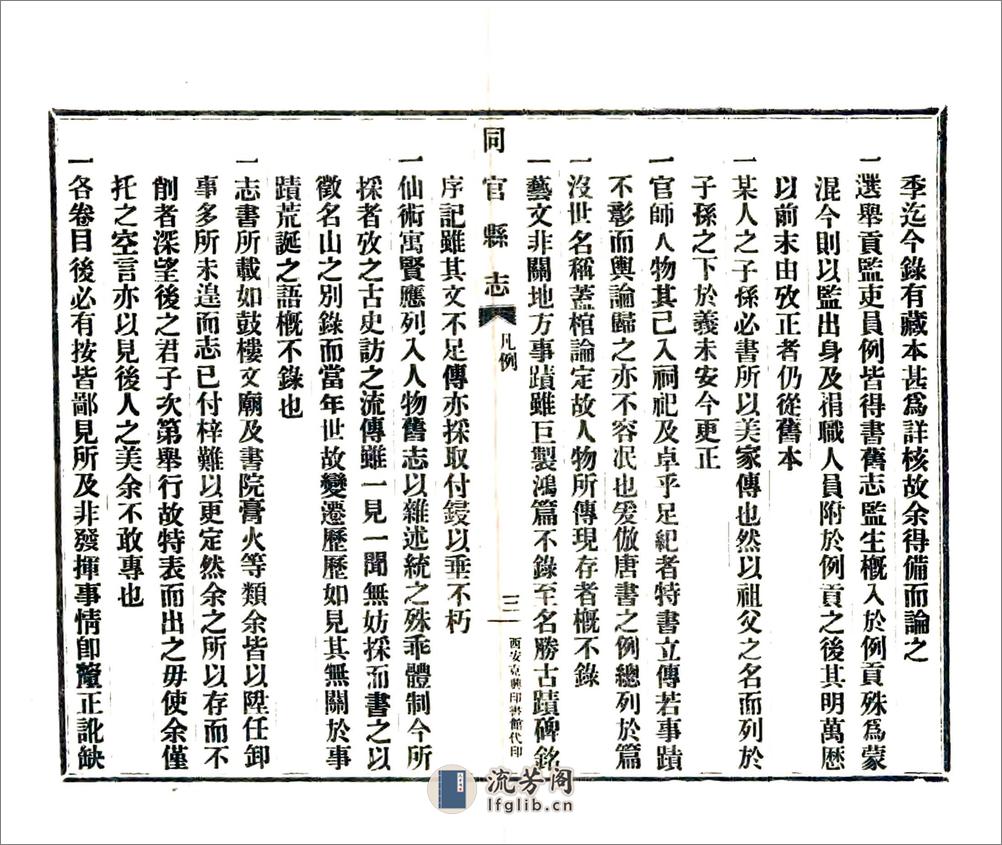 季迄今錄有藏本甚爲詳核故余得備而論之
一選舉貢監吏員例皆得書舊志監生槪入於例貢殊爲蒙
混今則以監出身及捐職人員附於例貢之後其明萬歷
以前末由攷正者仍從舊本
一某人之子孫必書所以美家傳也然以祖父之名而列於
子孫之下於義未安今更正
一官師人物其已入祠祀及卓乎足紀者特書立傳若事蹟
不彰而輿論歸之亦不容泯也爰倣唐書之例總列於篇
一沒世名稱蓋棺論定故人物所傳現存者槪不錄
一藝文非關地方事蹟雖巨製鴻篇不錄至名勝古蹟碑銘
同官縣志
凡例
三
西安克興印書館代印
序記雖其文不足傳亦採取付鋟以垂不朽
一仙術寓賢應列入人物舊志以雜述統之殊乖體制今所
採者攷之古史訪之流傳雖一見一聞無妨採而書之以
徵名山之別錄而當年世故變遷歷歷如見其無關於事
蹟荒誕之語槪不錄也
一志書所載如鼓樓文廟及書院膏火等類余皆以陞任卸
事多所未遑而志已付梓難以更定然余之所以存而不
削者深望後之君子次第舉行故特表而出之毋使余僅
托之空言亦以見後人之美余不敢專也
一各卷目後必有按皆鄙見所及非發揮事情卽釐正訛缺
流芳阁
lfglib.cn